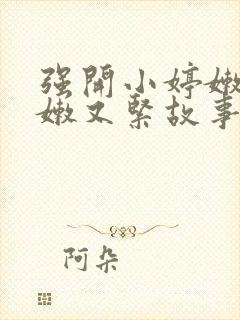 强開小婷嫩
嫩又緊故事
阿朵